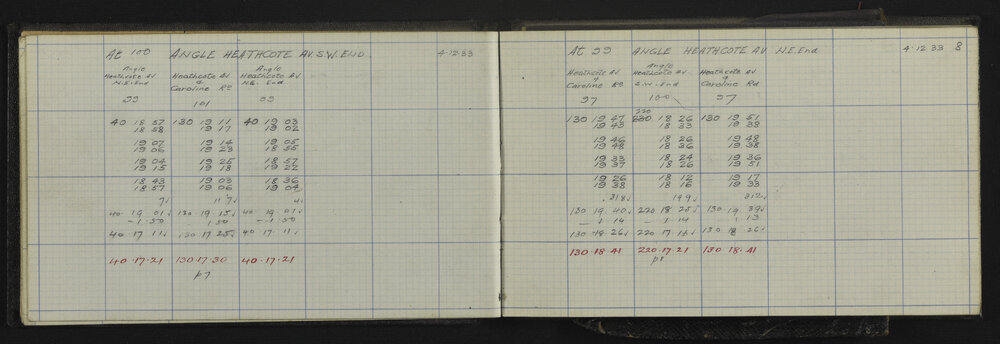 At 100 ANGLE HEATHCOTE AV. S.W. END 4.12.33
Angle Heathcote AV N.E. End
Heathcote AV & Caroline Rd
Angle Heathcote AV N.E. End
99 101 99
40 18 57 130 19 11 40 19 03
18 58 19 17 19 02
19 07 19 14 19 05
19 06 19 23 18 55
19 04 19 25 18 57
19 15 19 18 19 22
18 43 19 03 18 36
18 57 19 06 19 04
40.19 01 130.19.15 40.19 01
-1 50 1 50 -1 50
40.17 11 130 17 25 40.17.11
40.17.21 130.17.30 40.17.21
p7
At 99 ANGLE HEATHCOTE AV N.E. End 4.12 33 8
Heathcote AV & Caroline Rd
Angle Heathcote AV S.W. End
Heathcote AV & Caroline Rd
97 100 97
220
130 19 47 230 18 26 130 19 51
19 43 18 33 19 38
19 46 18 26 19 48
19 48 18 36 19 38
19 33 18 24 19 36
19 37 18 26 19 51
19 26 18 12 19 17
19 38 18 16 19 33
318 199 312
130 19.40 220 18 25 130.19 39
-1 14 -1 14 1 13
130.18.26 220 17 130 18 26
130.18.41 220.17.21 130.18.41
p8